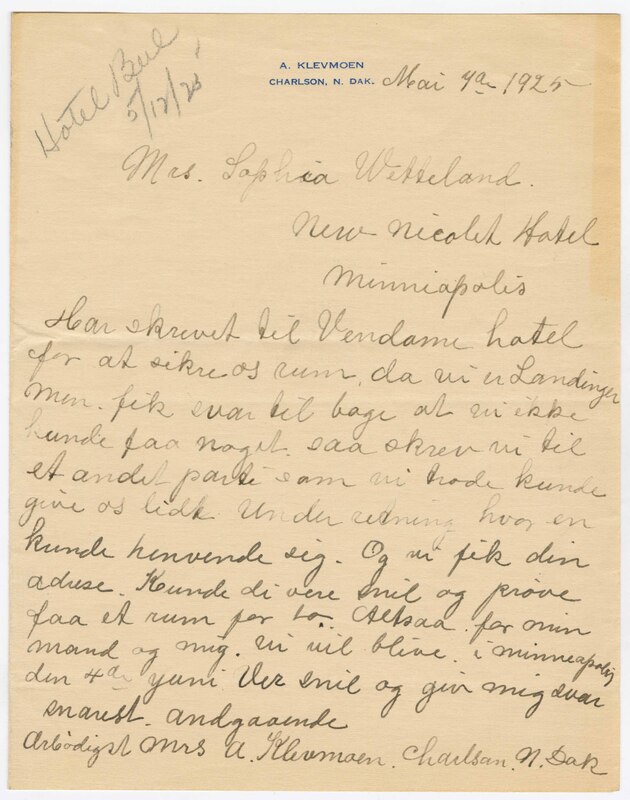 Hotel Bul
5/12/25
A. KLEVMOEN
CHARLSON, N. DAK.
Mai 7de 1925
Mrs. Sophia Wetteland.
New Nicolet Hotel
Minniapolis
Har skrevet til Vendame hotel
for at sikre os rum, da vi er Landinger
men. fik svar til bage at vi ikke
kunde faa noget. saa skrev vi til
et andet parti som vi trode kunde
give os lidt Under retning hvor en
kunde henvende sig. Og vi fik din
adrese. Kunde di vere snil og prøve
faa et rum for to. Altsaa. for min
mand og mig. vi vil blive. i minneapolis
den 4de yuni Ver snil og giv mig svar
snarest. andgaaende
Arbødigst Mrs A. Klevmoen. Charlson. N. Dak